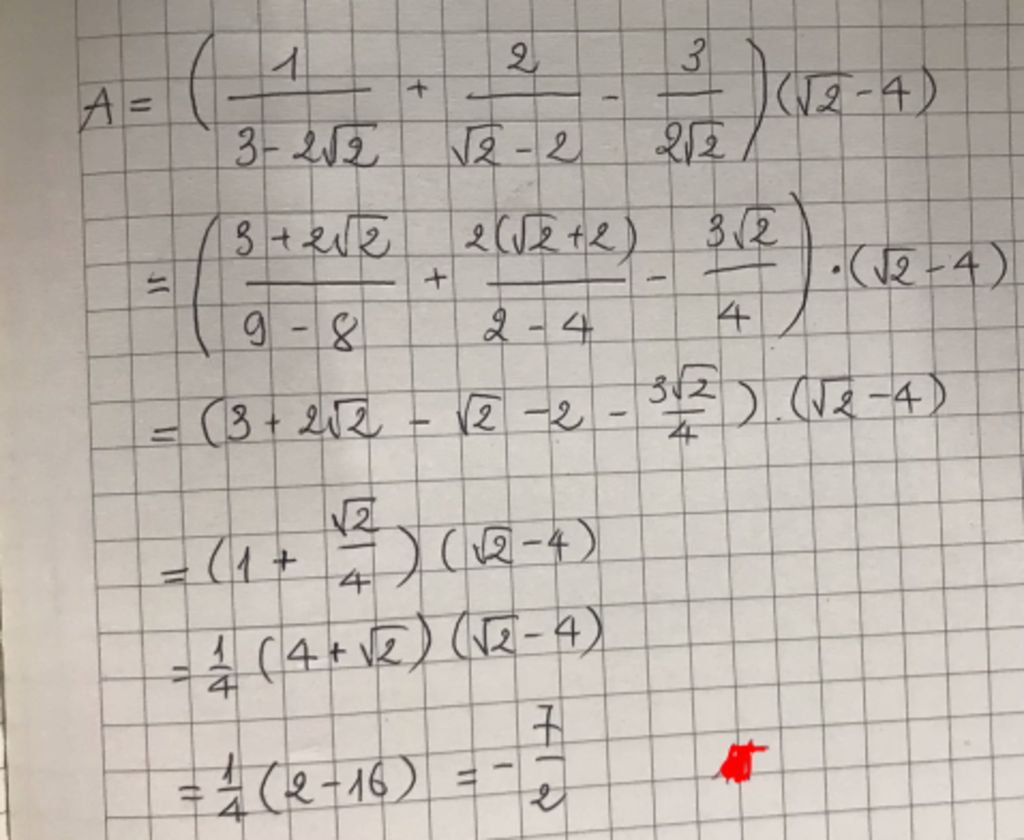 A = (1/(3-2√2) + 2/(√2-2) - 3/(2√2))(√2-4)
= ((3+2√2)/(9-8) + 2(√2+2)/(2-4) - 3√2/4).(√2-4)
= (3+2√2 - √2 -2 - 3√2/4).(√2-4)
= (1 + √2/4)(√2-4)
= 1/4 (4+√2)(√2-4)
= 1/4 (2-16) = - 7/2